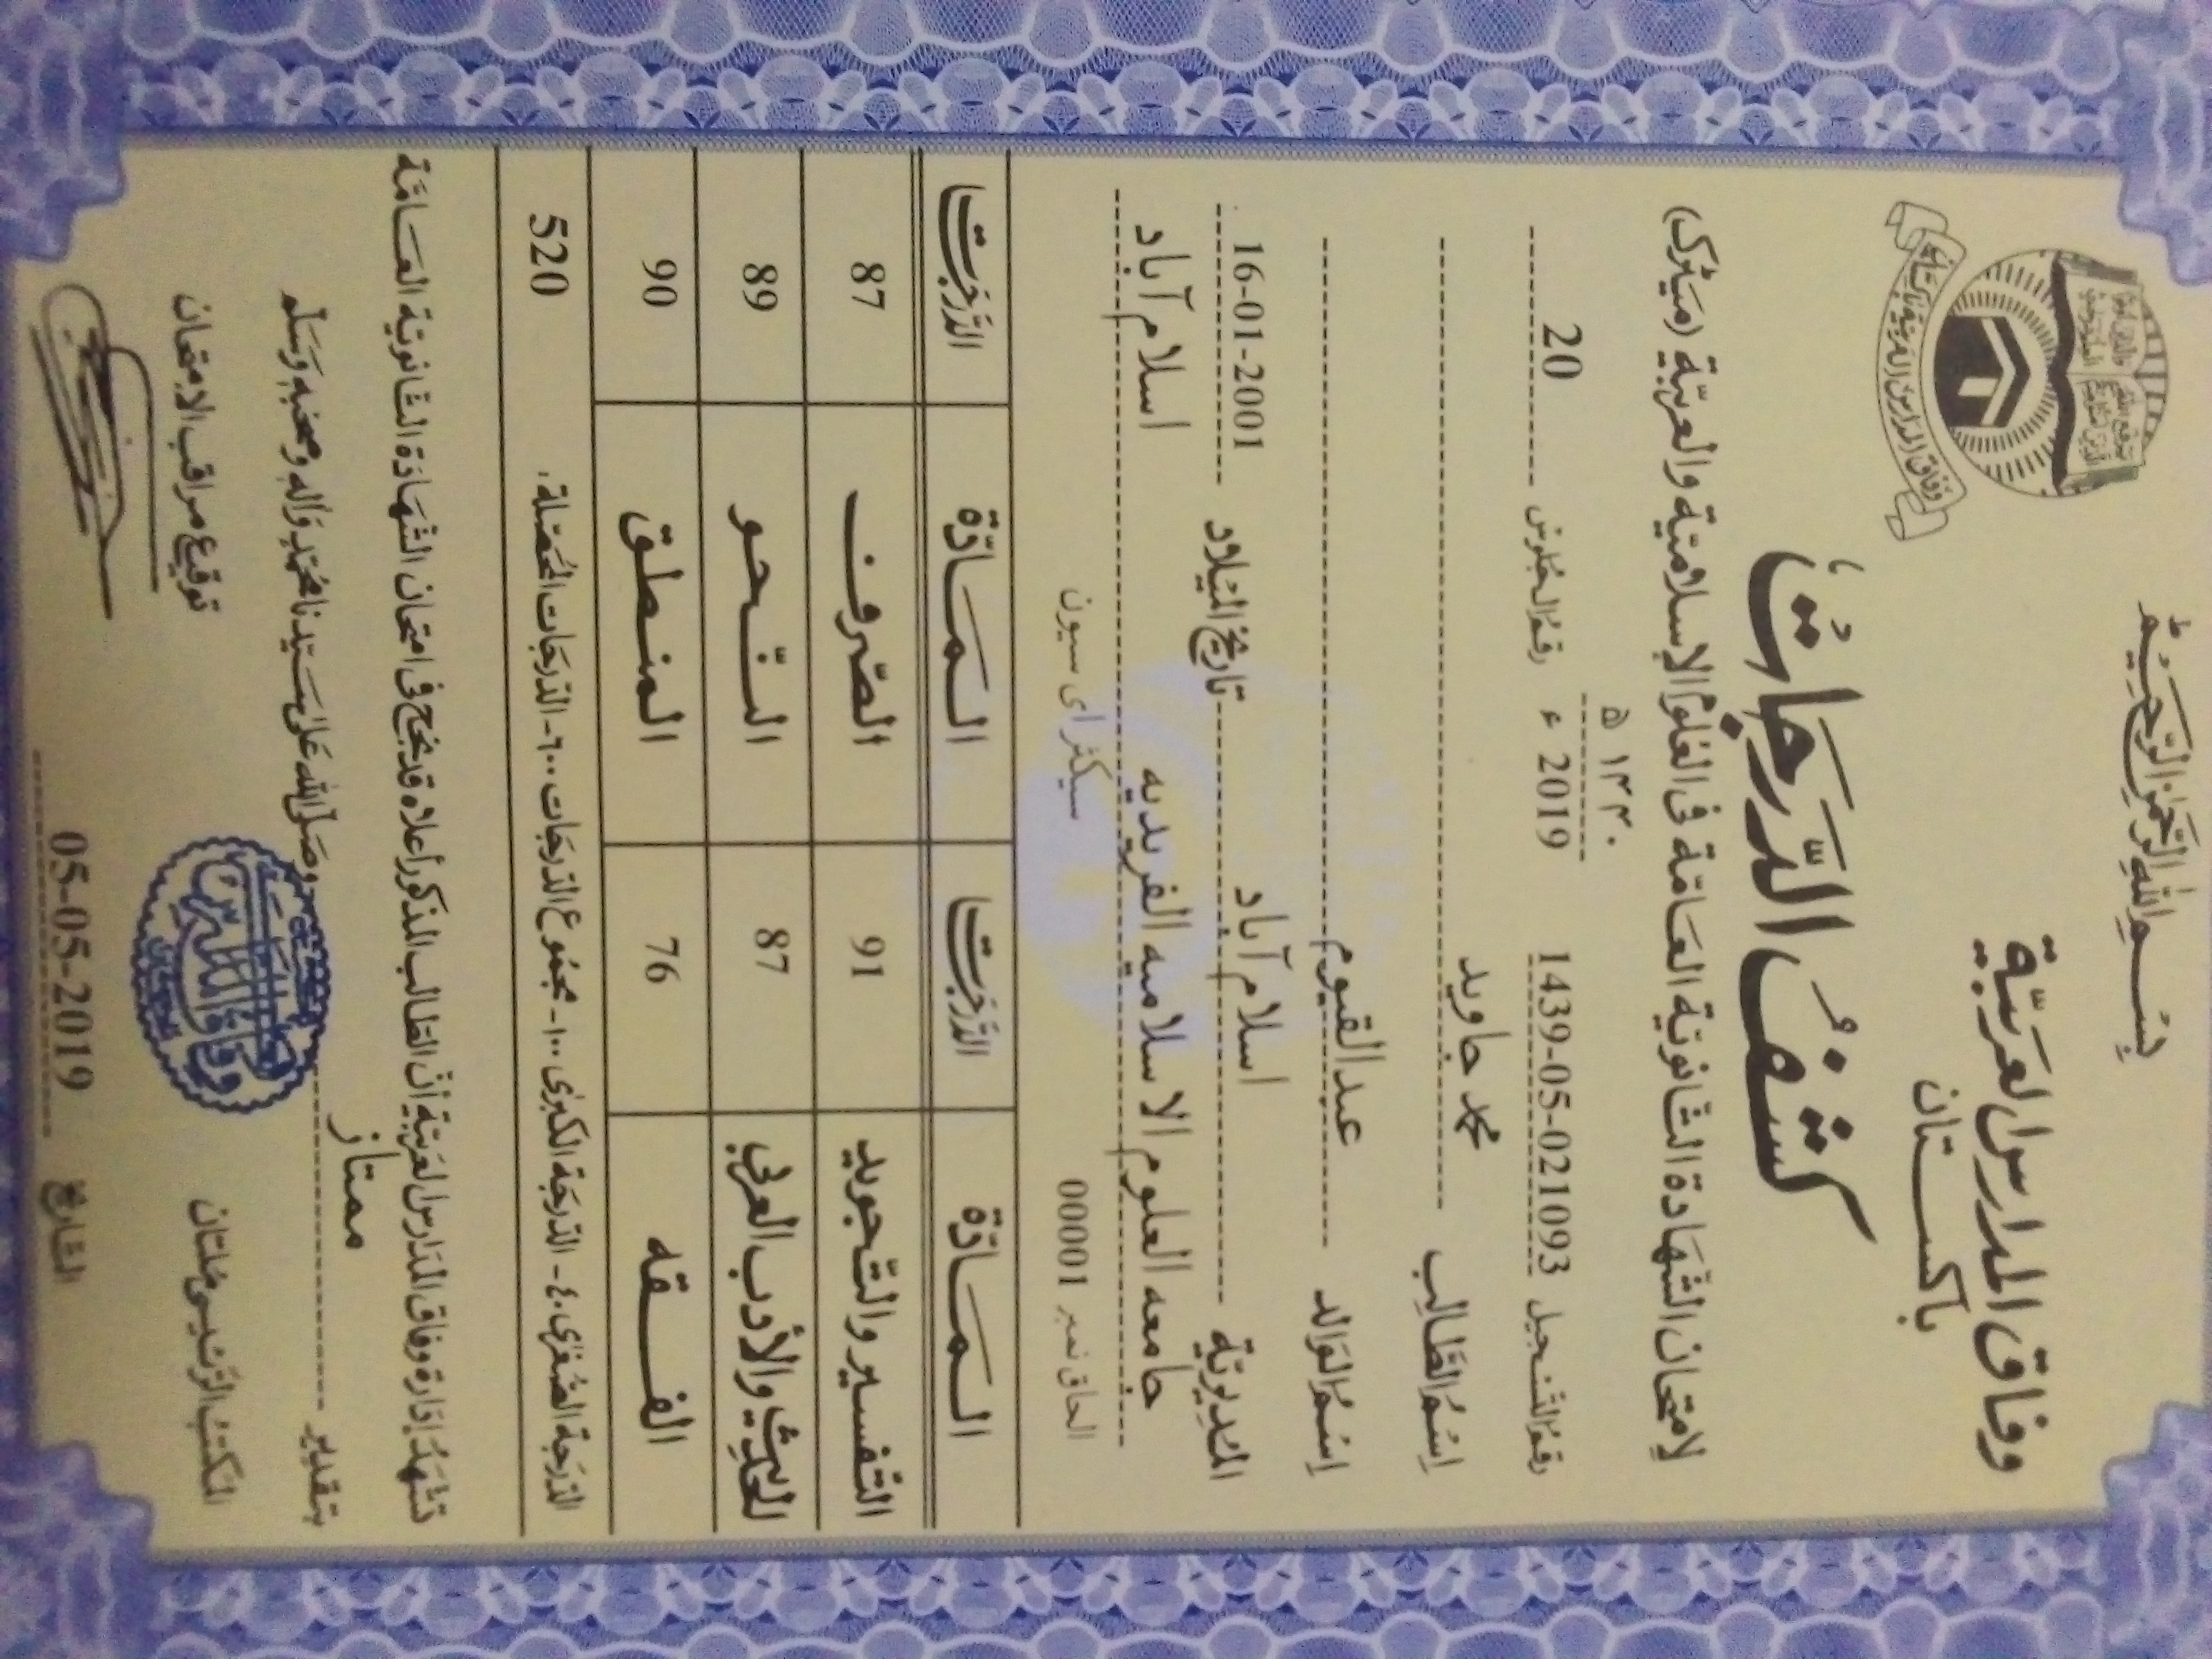 بِسْمِ اللهِ الرَّحْمٰنِ الرَّحِيْمِ
وفاق المدارس العربيّة
باكستان
وفاق المدارس العربية باكستان
كشفُ الدَّرجاتُ
لامتحان الشهادة الثانوية العامة فى العلوم الإسلامية والعربيّة (ميٹرک)
١٤٤٠ ه
رقم التسجيل 1439-05-021093 2019 ء رقم الجلوس 20
اسم الطالب محمد جاوید
اسم الوالد عبدالقیوم
المديرية اسلام آباد تاريخ الميلاد 16-01-2001
جامعه العلوم الاسلامیه الفریدیه اسلام آباد
الحاق نمبر 00001 سیکٹر ای سیون
المادّة الدّرجات المادّة الدّرجات
التفسير والتّجويد 91 الصّرف 87
الحديث والأدب العربي 87 النّحو 89
الفقه 76 المنطق 90
الدرجة الصغرى ٤٠ - الدرجة الكبرى ١٠٠ - مجموع الدرجات ٦٠٠ - الدرجات المحصّلة . 520
تشهد إدارة وفاق المدارس العربية أن الطالب المذكور أعلاه قد نجح فى امتحان الشهادة الثانوية العامة
بتقدير ممتاز وصلى الله على سيدنا محمد وآله وصحبه وسلم
المكتب الرئيسى ملتان توقيع مراقب الامتحان
التاريخ 05-05-2019